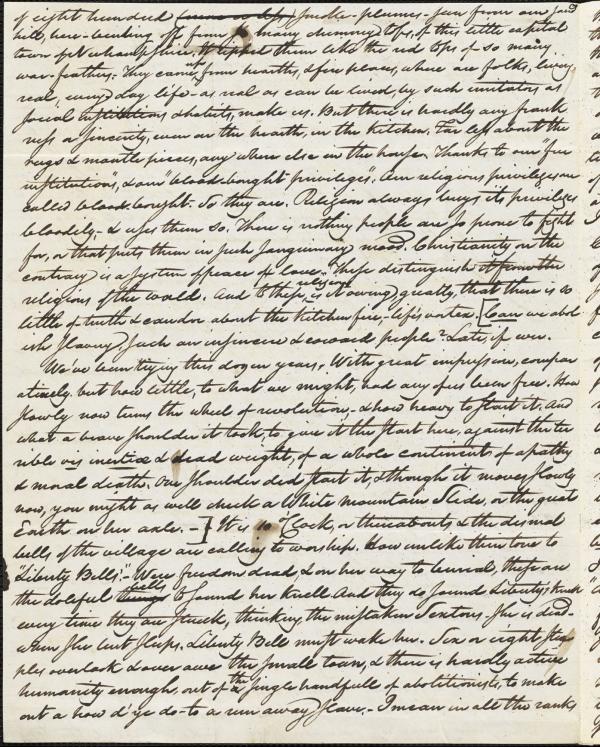 of eight hundred (more or less) smoke-plumes - seen from our pond
hill, here - bending off from so many chimney tops, of this little capital
town of New hampshire. It tipped them like the red tops of so many
war-feathers. They came up from hearths, & fire places, where are folks, living
real, every day life - as real as can be lived, by such imitators as
social institutions & habits, make us. But there is hardly any frank
ness or sincerity, even on the hearth, in the kitchen. Far less about the
rugs & mantle pieces, any where else in the house. Thanks to our "free
institutions", & our "blood-bought privileges". Our religious privileges are
called blood-bought. So they are. Religion always buys its privileges
bloodily - & uses them so. There is nothing people are so prone to fight
for, or that puts them in such sanguinary mood. Christianity on the
contrary is a system of peace & love. These distinguish it from the
religions of the world. And to these religions is it owing greatly, that there is so
little of truth & candor about the kitchen fire, - life's vortex. [Can we abol
ish slavery, such an insincere & coward people? Late, if ever.
We've been trying this dozen years. With great impression, compar
atively, but how little, to what we might, had any of us been free. How
slowly now turns the wheel of revolution - & how heavy to start it. And
what a brave shoulder it took, to give it the start here, against the ter
rible vis inertiæ & dead weight, of a whole continent of apathy
& moral death. One shoulder did start it & though it moves slowly
now, you might as well check a White mountain Slide, or the great
Earth on her axle. -] It is 10 o'Clock, or thereabouts, & the dismal
bells, of the village are calling to worship. How unlike their tone to
"Liberty Bells," - Were freedom dead, & on her way to burial, these are
the doleful bells to sound her knell. And they do sound Liberty's knell
every time they are struck, thinking, the mistaken Sextons, she is dead -
when she but sleeps. Liberty Bell must wake her. Six or eight stee
ples overlook & over awe the small town, & there is hardly active
humanity enough, out of the single handfull of abolitionists, to make
out a how d'ye do - to a run away slave, - I mean in all the ranks